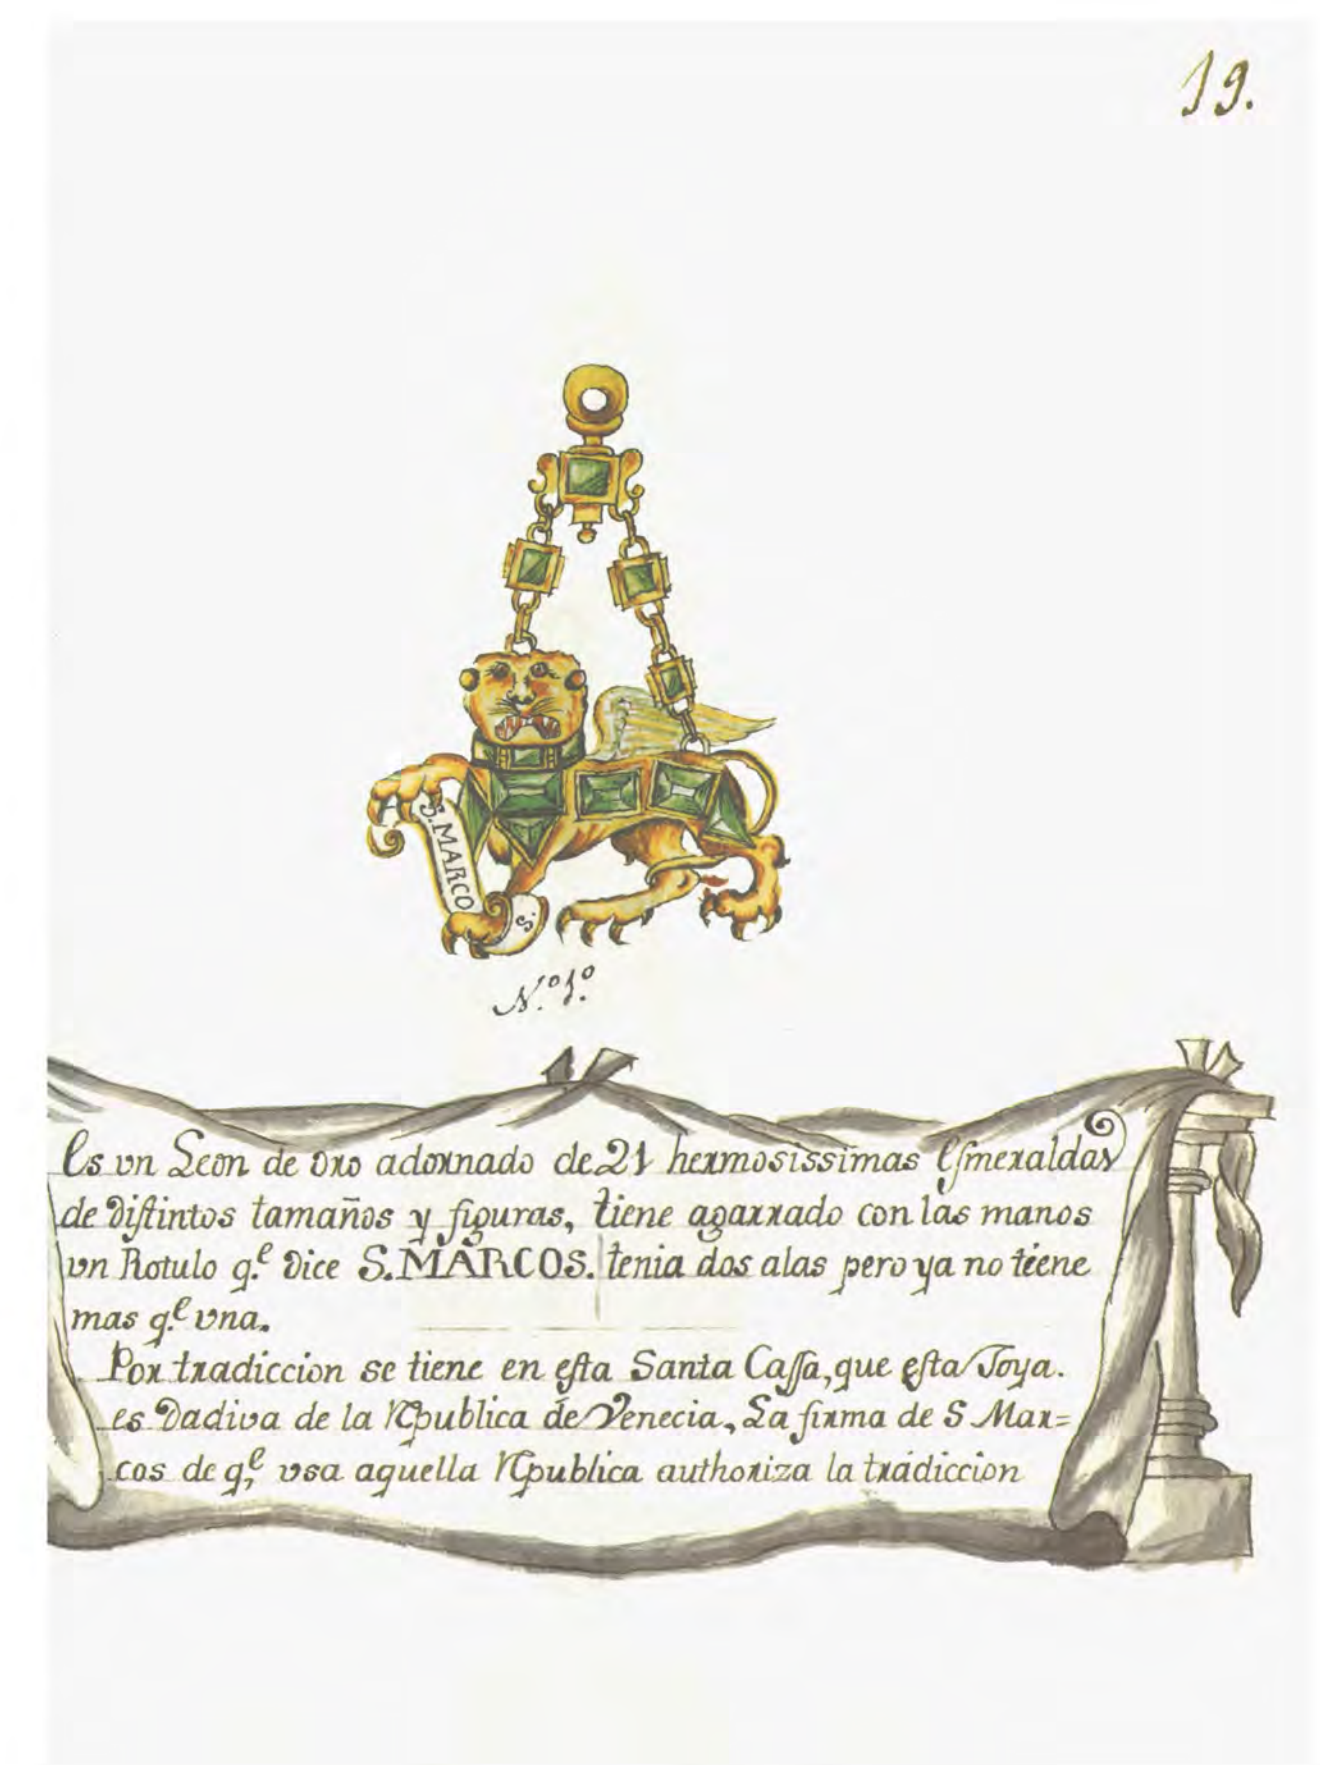 19.
S. MARCO
S.
N.º 1.º
Es vn Leon de oro adornado de 21 hermosissimas Esmeraldas
de distintos tamaños y figuras, tiene agarrado con las manos
vn Rotulo q.e dice S. MARCOS. tenia dos alas pero ya no tiene
mas q.e vna.
Por tradiccion se tiene en esta Santa Cassa, que esta Joya.
es Dadiva de la Rpublica de Venecia, La firma de S Mar=
cos de q.e vsa aquella Rpublica authoriza la tradiccion